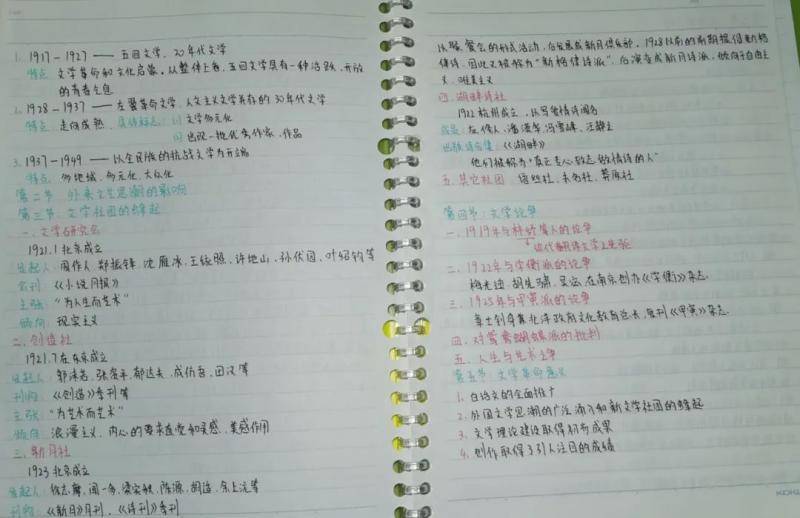 1. 1917-1927 —— 五四文学、20年代文学
特点: 文学革命和文化启蒙。从整体上看,五四文学具有一种活跃、开放的青春气息
2. 1928-1937 —— 左翼革命文学、人文主义文学并存的30年代文学
特点: 走向成熟. 具体标志: (1) 文学多元化
(2) 出现一批优秀作家、作品
3. 1937-1949 —— 以全民族的抗战文学为开端
特点: 多地域、多元化、大众化
第二节 外来文艺思潮的影响
第三节: 文学社团的蜂起
一、文学研究会
1921.1 北京成立
发起人: 周作人 郑振铎 沈雁冰、王统照、许地山、孙伏园、叶绍钧等
会刊: 《小说月报》
主张: “为人生而艺术”
倾向: 现实主义
二、创造社
1921.7 在东京成立
发起人: 郭沫若、张资平、郁达夫、成仿吾、田汉等
刊物: 《创造》季刊等
主张: “为艺术而艺术”
倾向: 浪漫主义、内心的要求直觉和灵感、美感作用
三、新月社
1923 北京成立
发起人: 徐志摩、闻一多、梁实秋、陈源、胡适、余上沅等
刊物: 《新月》月刊、《诗刊》季刊
聚餐会的形式活动,后发展成新月俱乐部。1928以前的前期提倡新格律诗,因此又被称为“新格律诗派”。后演变成新月诗派,倾向于自由主义、唯美主义
四、湖畔诗社
1922 杭州成立,以写爱情诗闻名
成员: 应修人、潘漠华、冯雪峰、汪静之
出版诗合集: 《湖畔》
他们被称为“真正专心致志做情诗的人”
五、其它社团 语丝社、未名社、莽原社
第四节: 文学论争
一、1919年与林纾等人的论争
近代翻译文学之先驱
二、1922年与学衡派的论争
梅光迪、胡先骕、吴宓、在南京创办《学衡》杂志.
三、1925年与甲寅派的论争
章士钊身兼北洋政府文化教育边长,复刊《甲寅》杂志.
四、对鸳鸯蝴蝶派的批判
五、人生与艺术之争
第五节: 文学革命意义
1. 白话文的全面推广
2. 外国文学思潮的广泛涌入和新文学社团的蜂起
3. 文学理论建设取得初步成果
4. 创作取得了引人注目的成绩